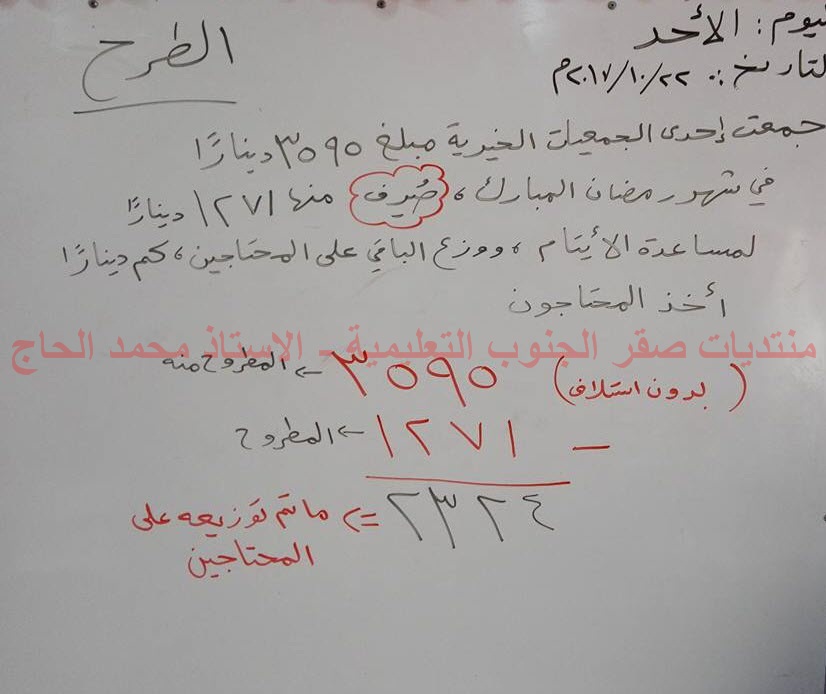 ليوم : الأحد
لتاريخ : ٢٠١٧/١٠/٢٢م
الطرح
جمعت إحدى الجمعيات الخيرية مبلغ ٣٥٩٥ دينارًا
في شهر رمضان المبارك ، صُرِف منها ١٢٧١ دينارًا
لمساعدة الأيتام ، ووزع الباقي على المحتاجين ، كم دينارًا
أخذ المحتاجون
منتديات صقر الجنوب التعليمية - الاستاذ محمد الحاج
(بدون استلاف) ٣٥٩٥ ← المطروح منه
- ١٢٧١ ← المطروح
٢٣٢٤ <= ما تم توزيعه على
المحتاجين